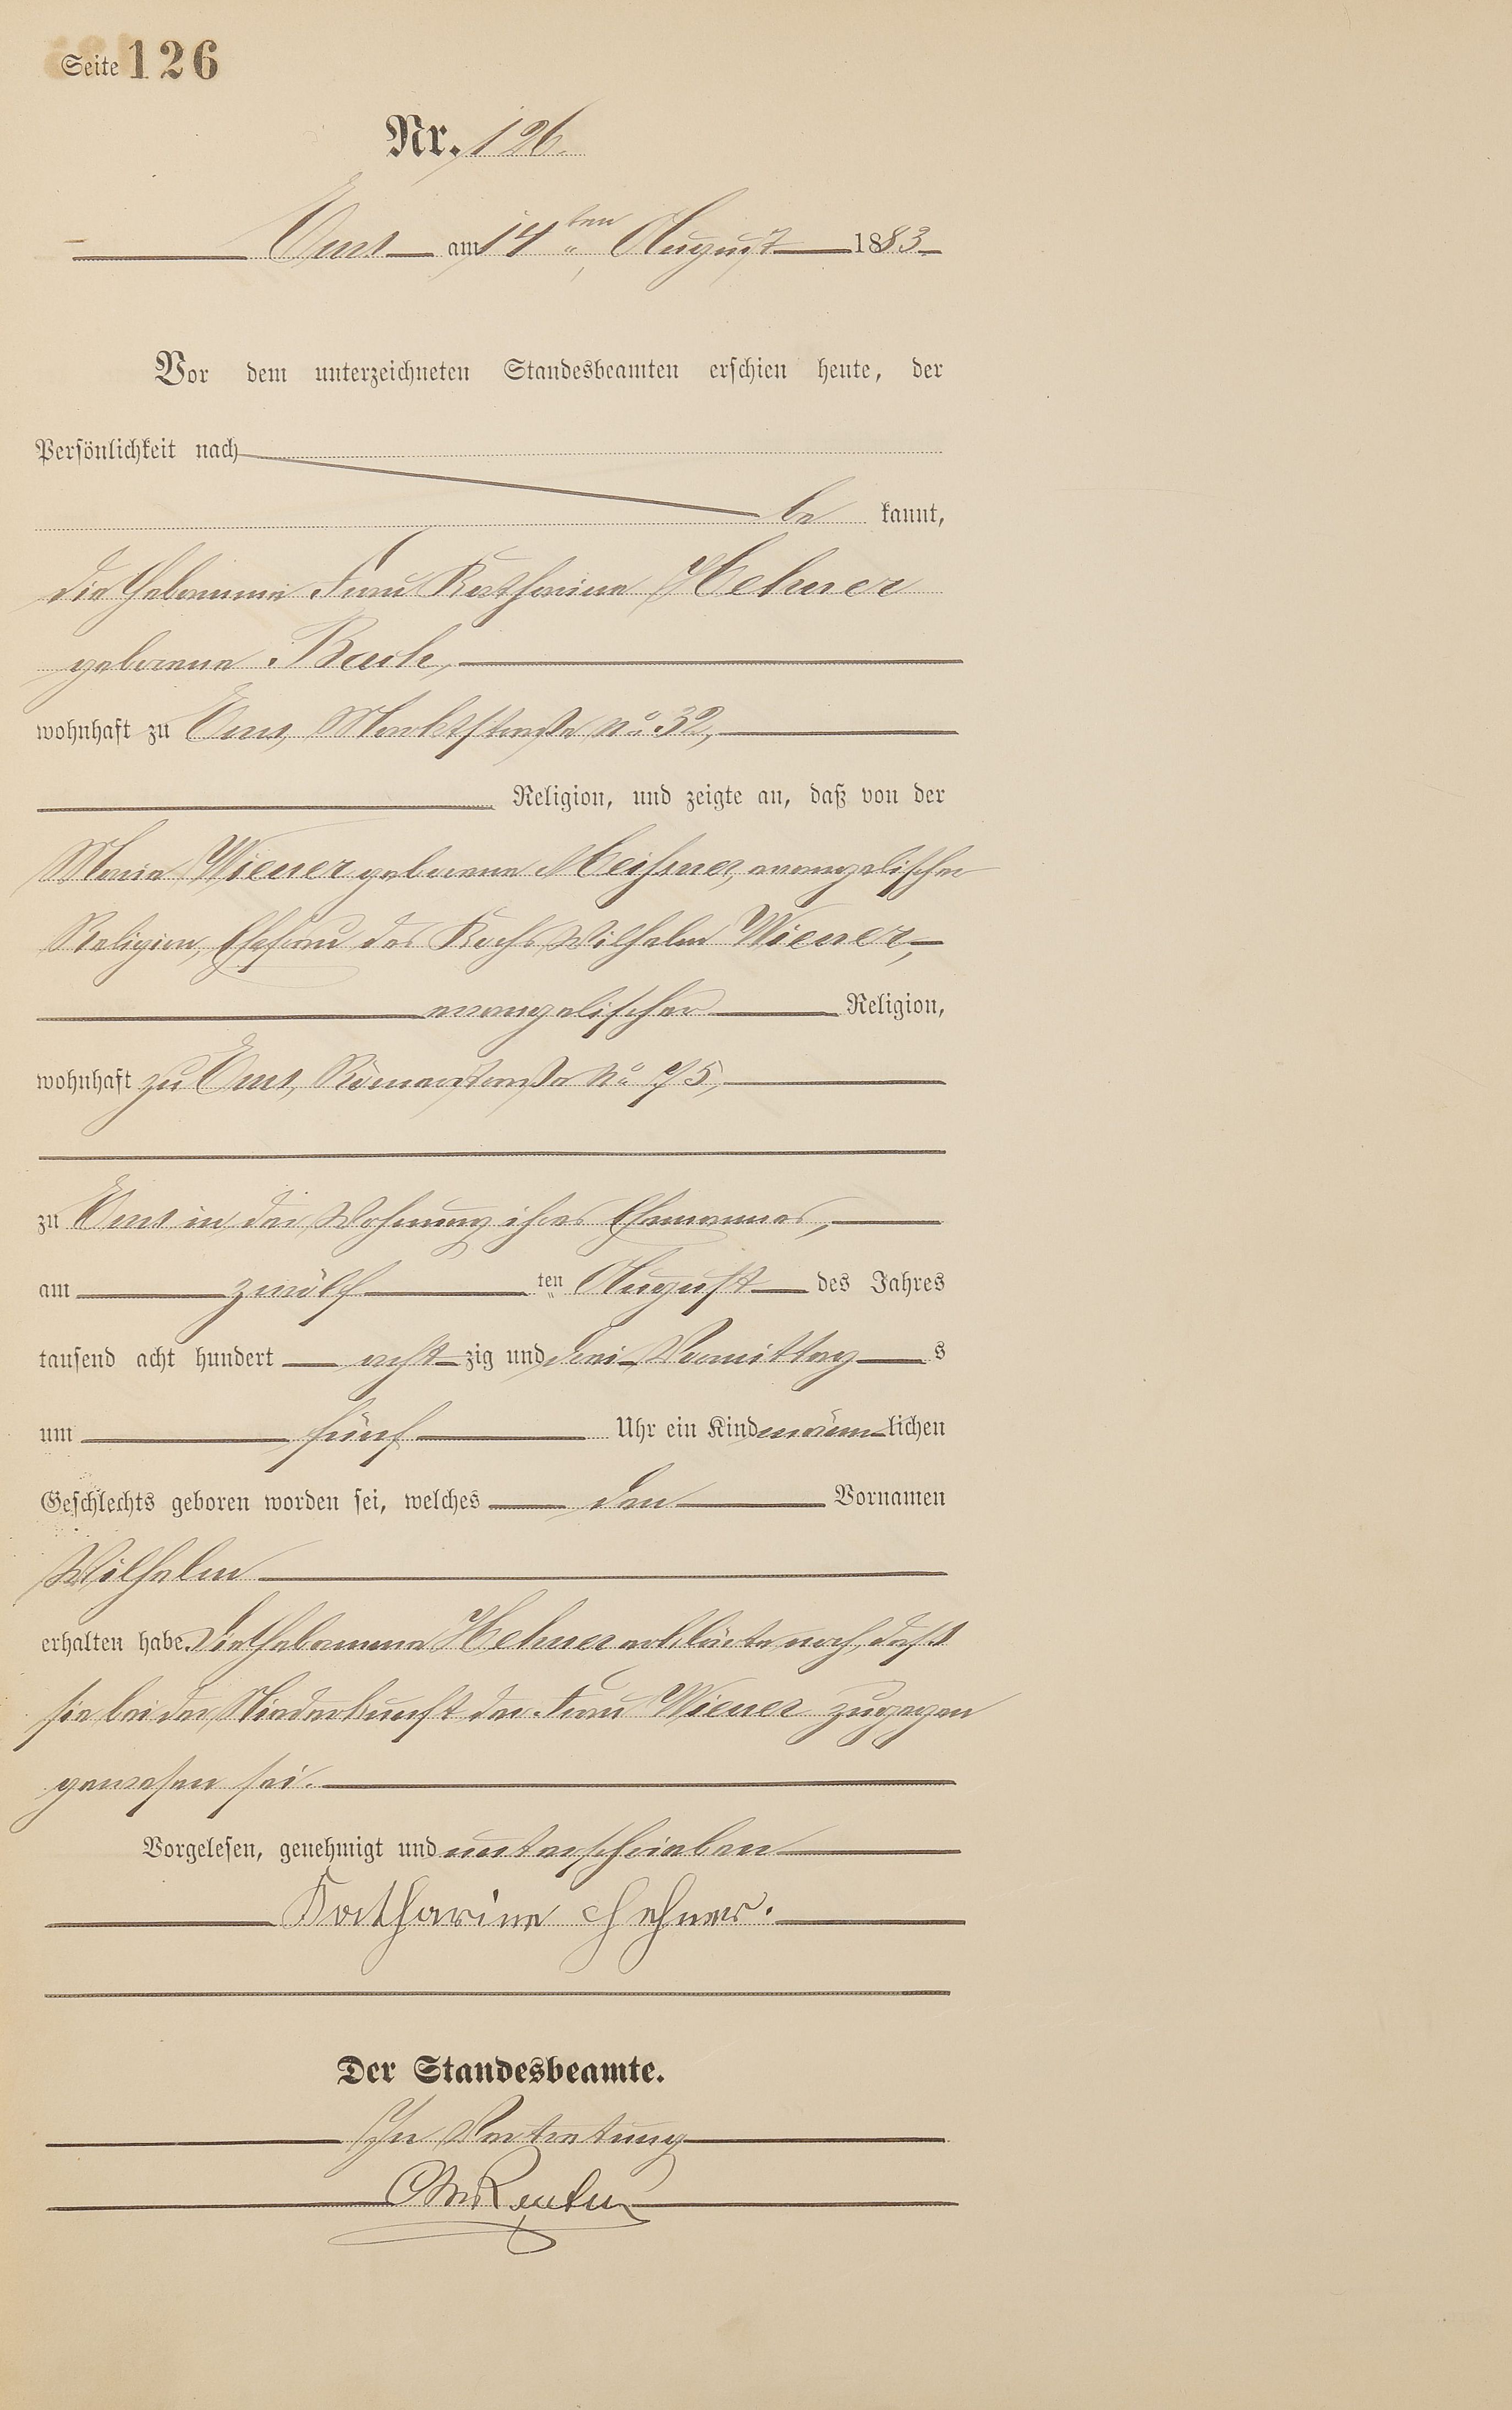 Seite 126
Nr. 126.
Ems am 14ten August 1883
Vor dem unterzeichneten Standesbeamten erschien heute, der
Persönlichkeit nach
be kannt,
die Hebamme Frau Katharina Hehner
geborene Bach,
wohnhaft zu Ems, Marktstraße No 32,
Religion, und zeigte an, daß von der
Maria Wiener geborene Meißner, evangelischer
Religion, Ehefrau des Kochs Wilhelm Wiener,
evangelischer Religion,
wohnhaft zu Ems, Römerstraße No 75,
zu Ems in der Wohnung ihres Ehemannes,
am zwölf ten August des Jahres
tausend acht hundert acht zig und drei Vormittag s
um fünf Uhr ein Kind männ lichen
Geschlechts geboren worden sei, welches den Vornamen
Wilhelm
erhalten habe. Die Hebamme Hehner erklärte noch, daß
sie bei der Niederkunft der Frau Wiener zugegen
gewesen sei.
Vorgelesen, genehmigt und unterschrieben
Katharine Hehner.
Der Standesbeamte.
In Vertretung